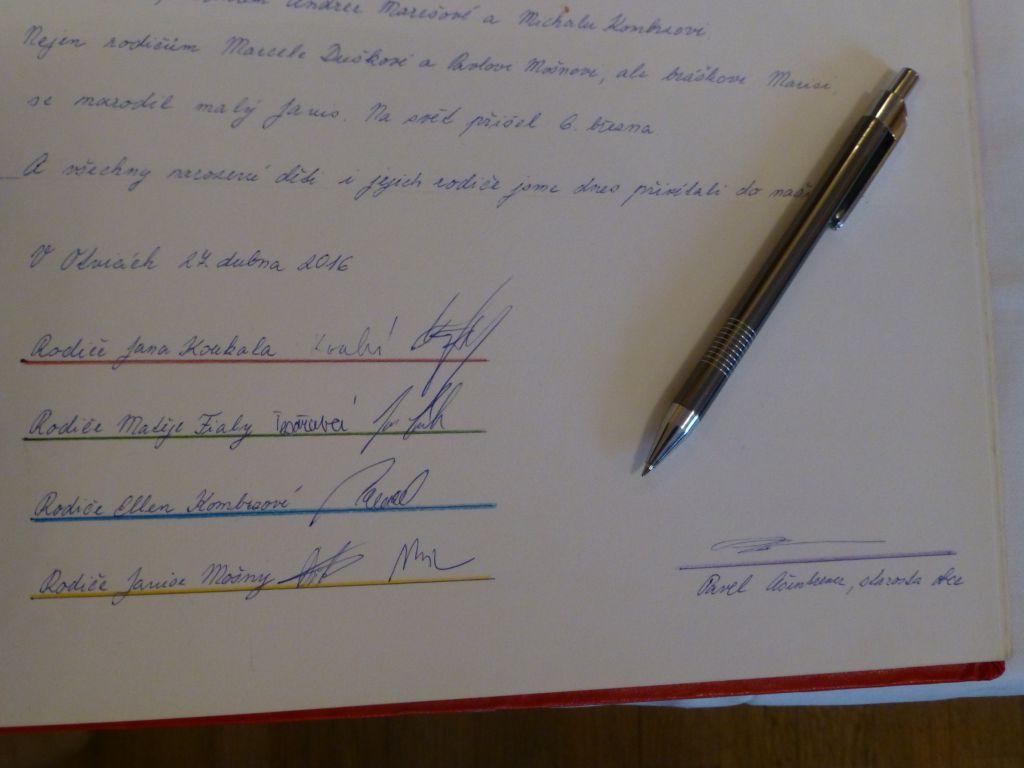 Andree Marešové a Michalu Kombrovi
Nejen rodičům Marcele Duškové a Pavlovi Mošnovi, ale bráškovi
se narodil malý Janis. Na svět přišel 6. března
A všechny narozené děti i jejich rodiče jsme dnes přivítali do naší
V Otvicích 27. dubna 2016
Rodiče Jana Koukala
Rodiče Matěje Fialy
Rodiče Ellen Kombrové
Rodiče Janise Mošny
Pavel starosta obce